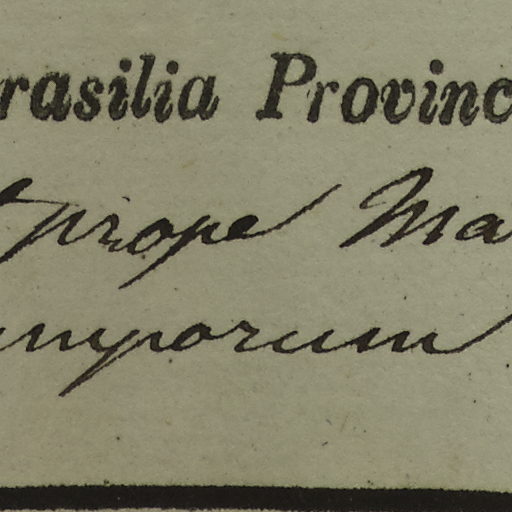 rasilia Provinc
prope Ma
mporum